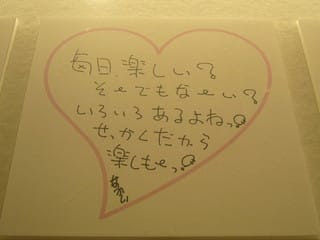 毎日、楽しい?
そーでもなーい?
いろいろあるよねっ。
せっかくだから
楽しもーっ。